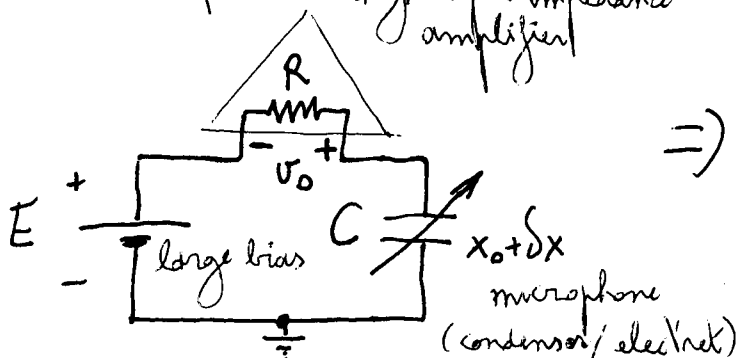 impedance
amplifier
R
- v₀ +
=>
E + -
large bias
C
x₀+δx
microphone
(condensor/elec'ret)